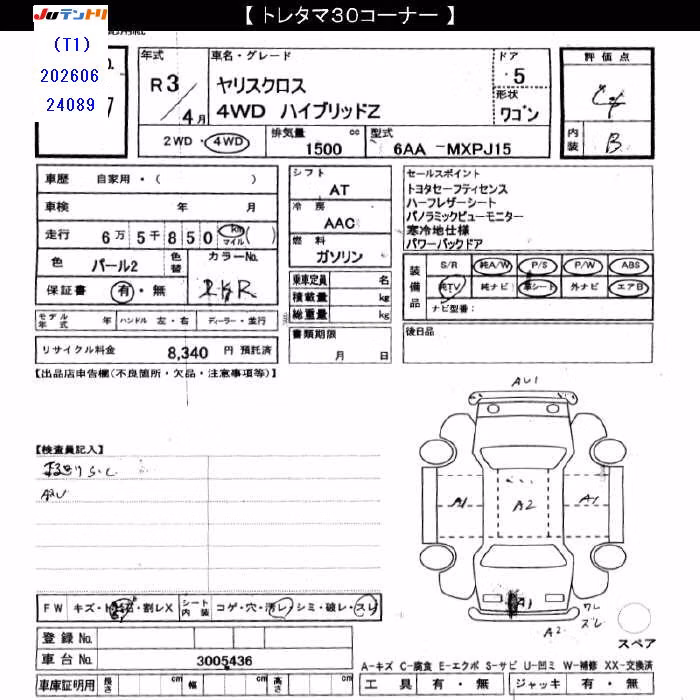 【 トレタマ30コーナー 】
JUテントリ
(T1)
202606
24089
年式
R3／4月
車名・グレード
ヤリスクロス
4WD ハイブリッドZ
ドア
5
形状
ワゴン
評価点
内装
B
2WD・4WD
排気量
1500 cc
型式
6AA -MXPJ15
車歴 自家用・( )
車検 年 月
走行 6万 5千 850 km マイル ( )
色 パール2
色替
カラーNo.
保証書 有・無
モデル年式 年 ハンドル 左・右 ディーラー・並行
リサイクル料金 8,340 円 預託済
シフト
AT
冷房
AAC
燃料
ガソリン
乗車定員 名
積載量 kg
総重量 kg
書類期限
月 日
セールスポイント
トヨタセーフティセンス
ハーフレザーシート
パノラミックビューモニター
寒冷地仕様
パワーバックドア
装備品
S/R 純A/W P/S P/W ABS
純TV 純ナビ 革シート 外ナビ エアB
ナビ型番:
後日品
【出品店申告欄(不良箇所・欠品・注意事項等)】
【検査員記入】
AU1
A1
A2
A1
A1
A2
ワレ
ズレ
スペア
FW キズ・ト
・割レX
シート内装
コゲ・穴・汚レ・シミ・破レ・スレ
登録 No.
車台 No. 3005436
車庫証明用 長さ cm 幅 cm 高さ cm
A-キズ C-腐食 E-エクボ S-サビ U-凹ミ W-補修 XX-交換済
工具 有・無 ジャッキ 有・無